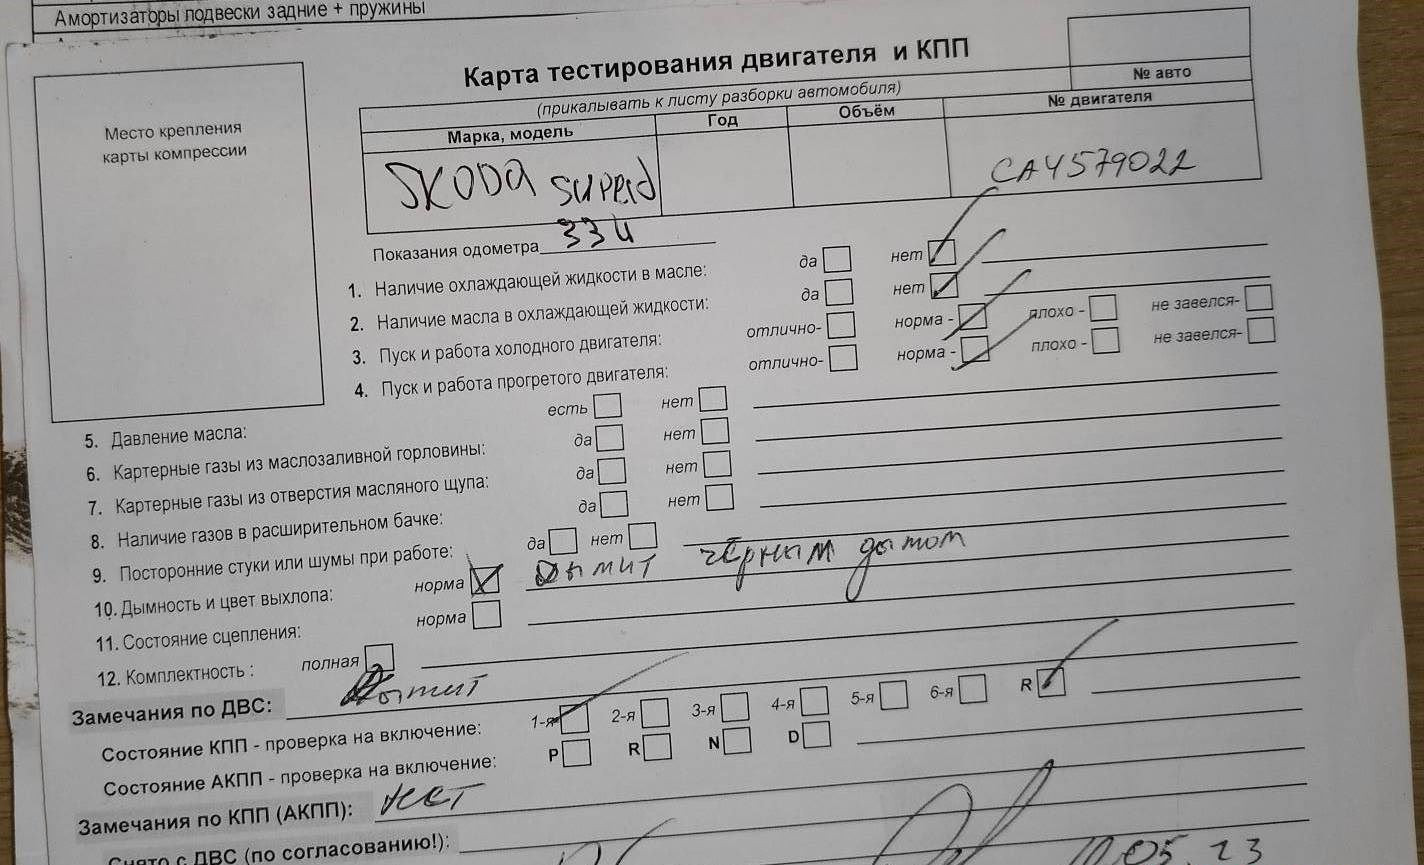 Амортизаторы подвески задние + пружины
Место крепления
карты компрессии
Карта тестирования двигателя и КПП
(прикалывать к листу разборки автомобиля)
№ авто
Марка, модель Год Объём № двигателя
SKODA superb CAY579022
Показания одометра 334
1. Наличие охлаждающей жидкости в масле: да нет
2. Наличие масла в охлаждающей жидкости: да нет
3. Пуск и работа холодного двигателя: отлично- норма - плохо - не завелся-
4. Пуск и работа прогретого двигателя: отлично- норма - плохо - не завелся-
5. Давление масла: есть нет
6. Картерные газы из маслозаливной горловины: да нет
7. Картерные газы из отверстия масляного щупа: да нет
8. Наличие газов в расширительном бачке: да нет
9. Посторонние стуки или шумы при работе: да нет
10. Дымность и цвет выхлопа: норма Дымит чёрным дымом
11. Состояние сцепления: норма
12. Комплектность : полная
Замечания по ДВС: Дымит
Состояние КПП - проверка на включение: 1-я 2-я 3-я 4-я 5-я 6-я R
Состояние АКПП - проверка на включение: P R N D
Замечания по КПП (АКПП): нет
Снято с ДВС (по согласованию!):
05.23